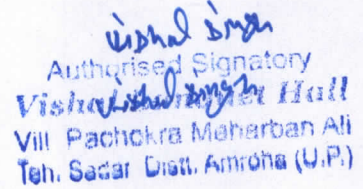 Vishal Singh
Authorised Signatory
Vishal Singh Hall
Vill Pachokra Meharban Ali
Teh. Sadar Distt. Amroha (U.P.)